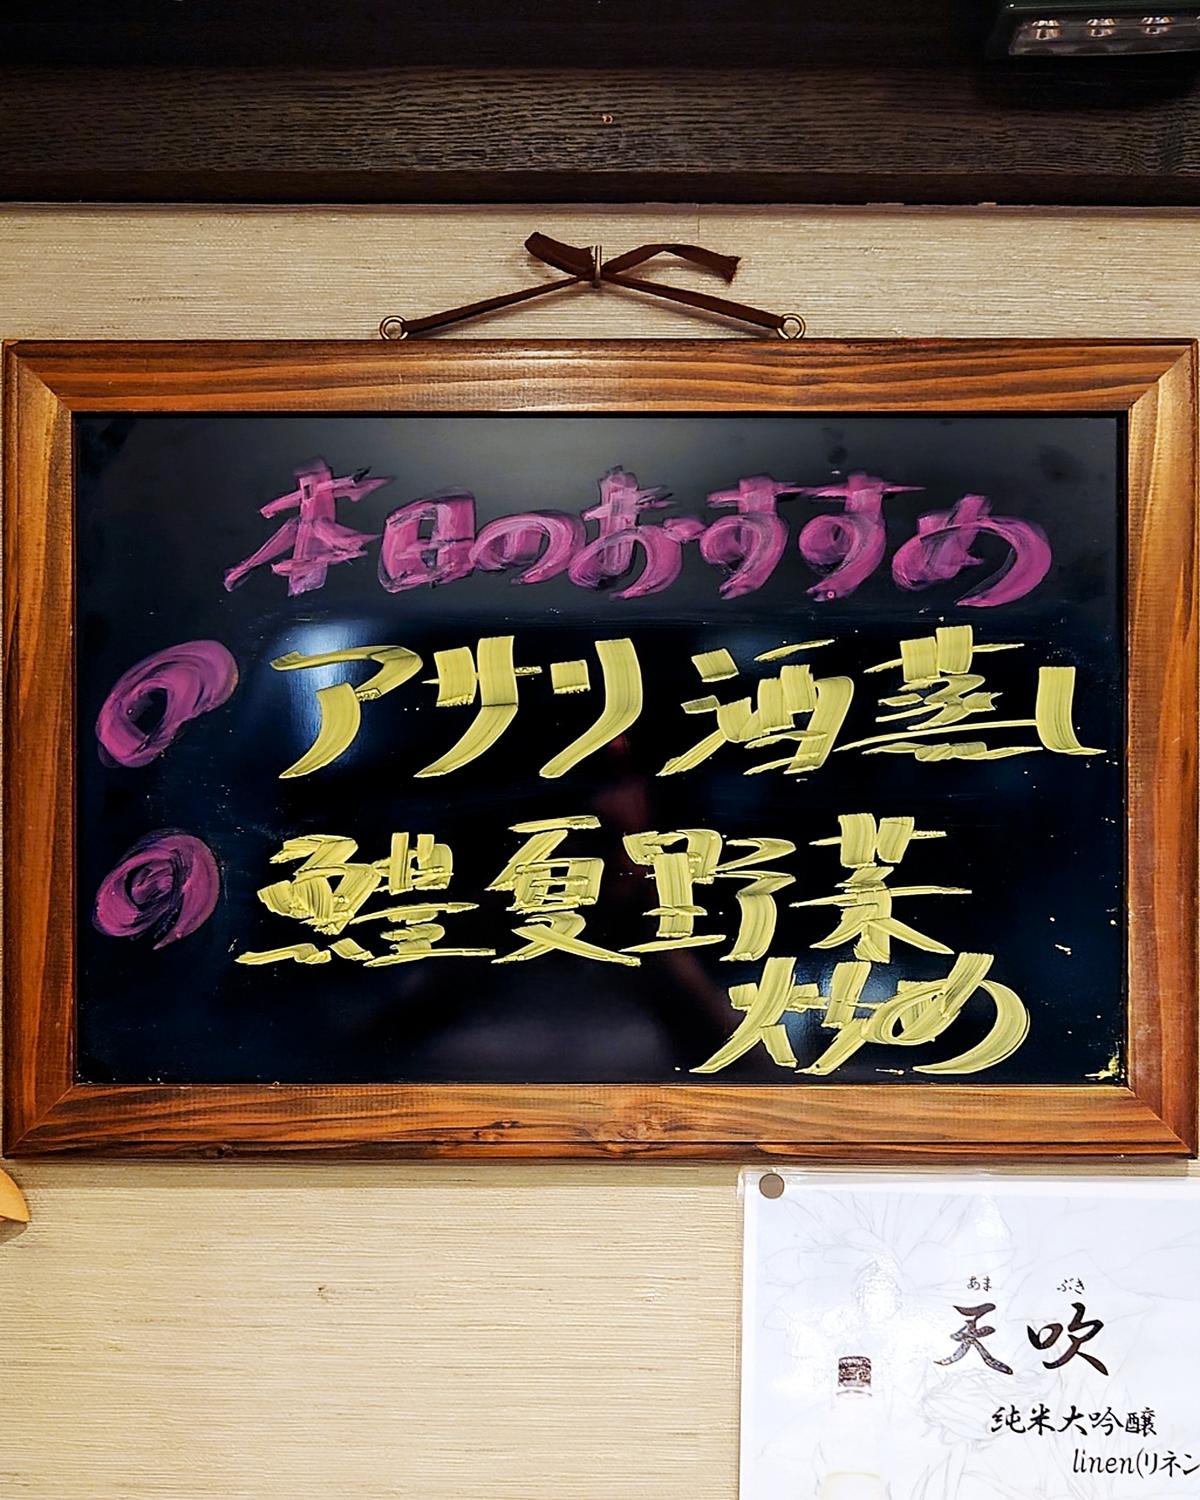 本日のおすすめ
アサリ酒蒸し
鱧夏野菜
炒め
あま ぶき
天吹
純米大吟醸
linen(リネン